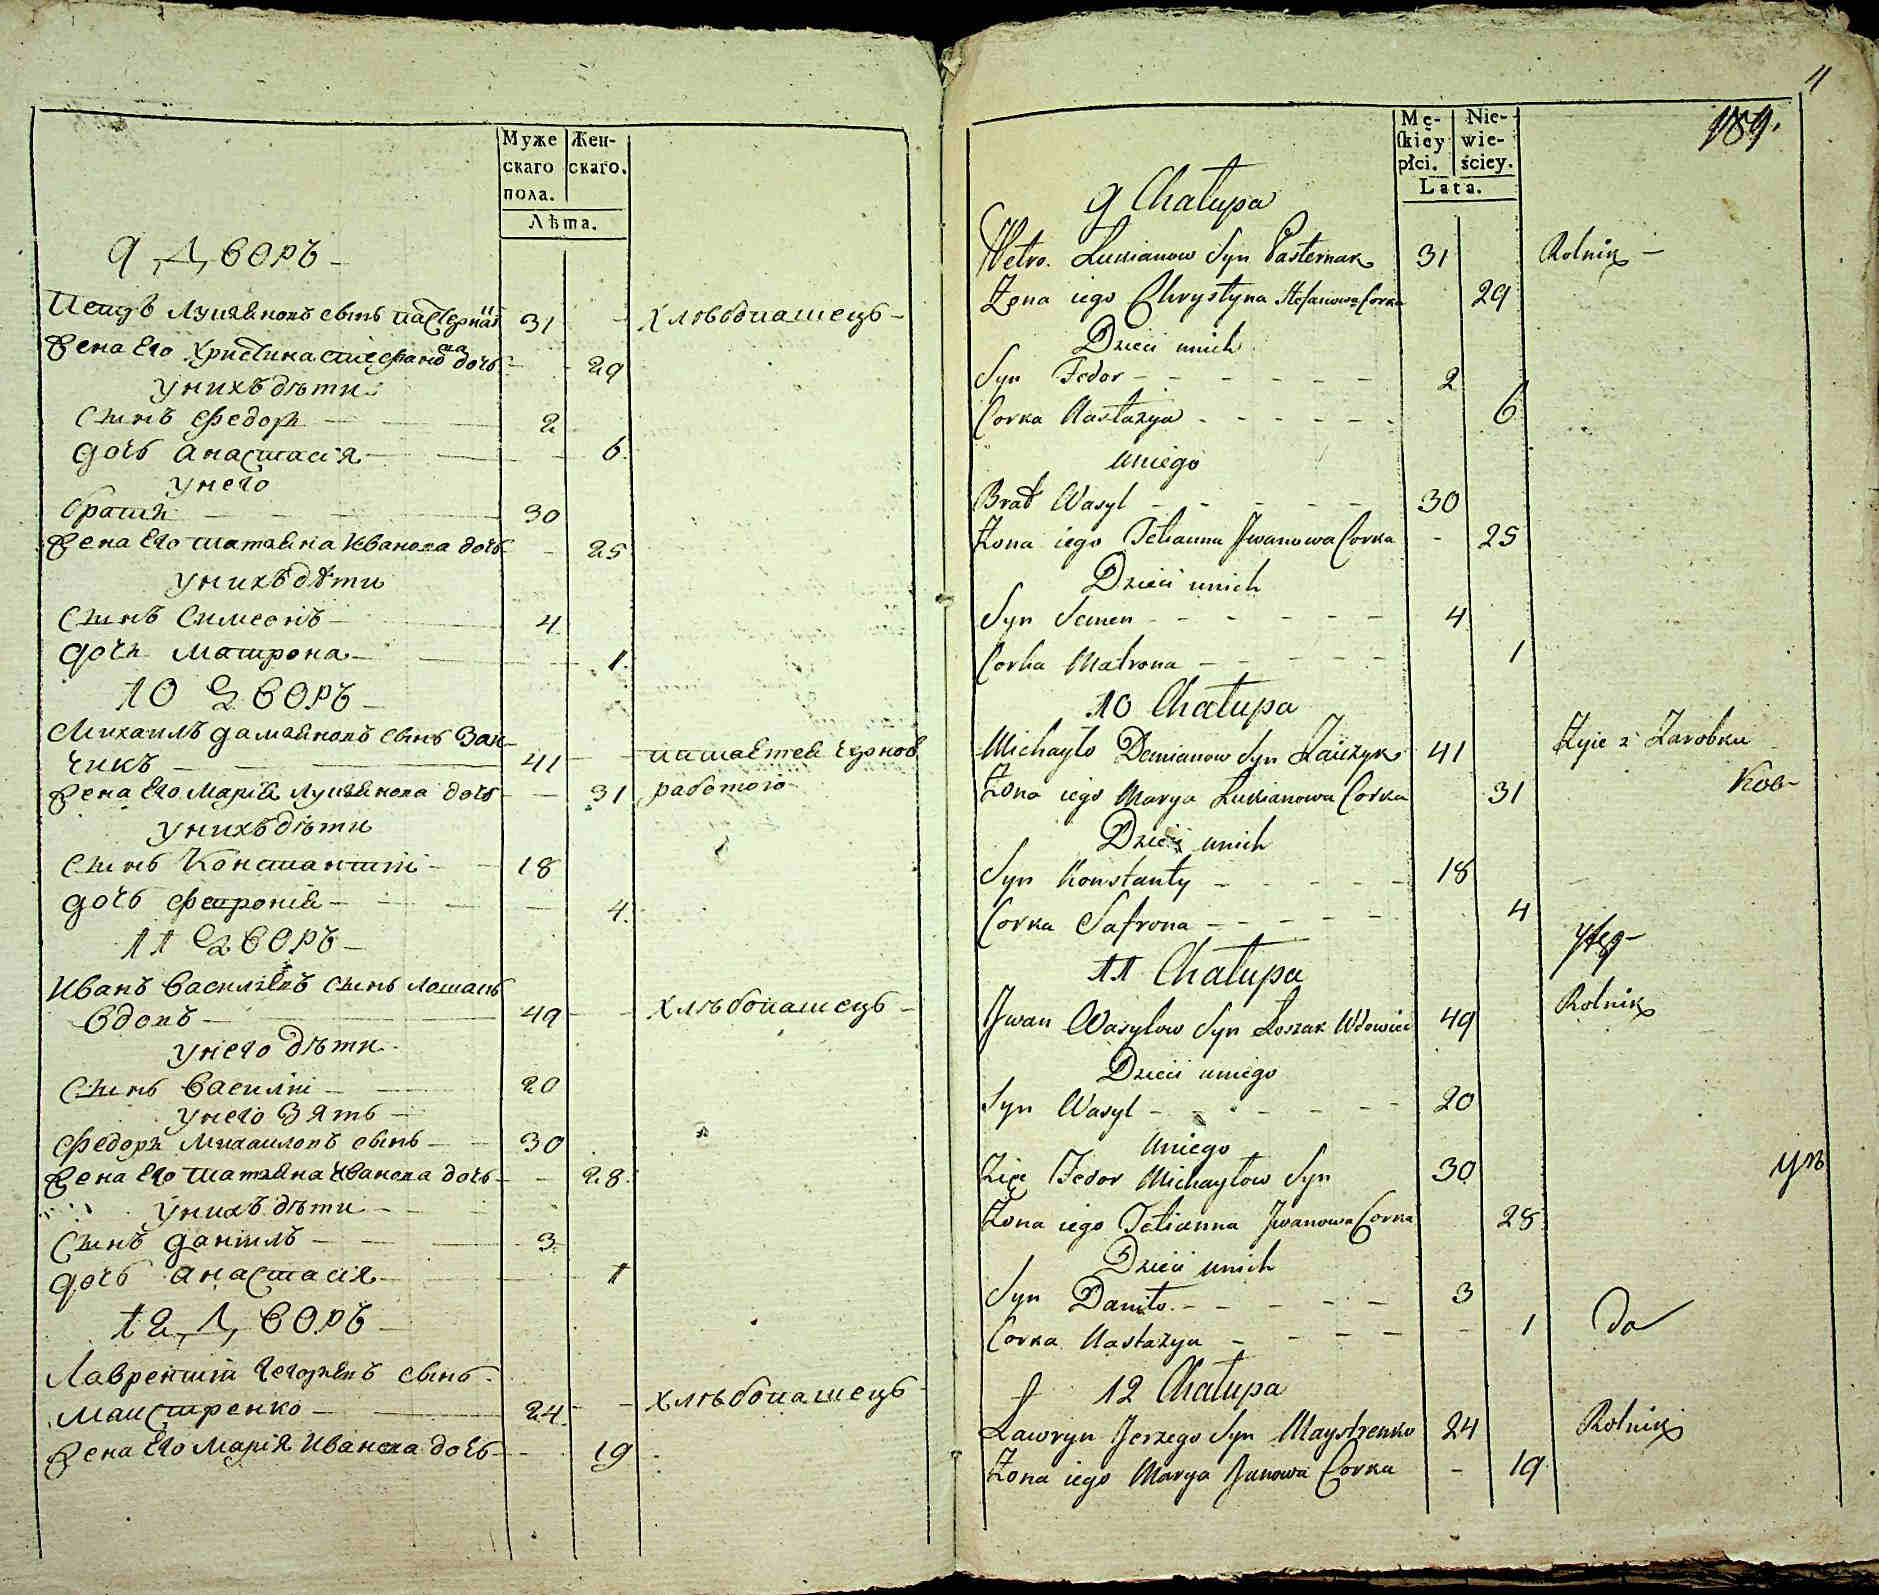 Муже
скаго
пола.
Жен-
скаго.
Лѣта.
9 Дворъ
Петръ Лукяновъ сынъ Пастернак 31 Хлѣбопашецъ
Жена Его Христина Стефанова дочь 29
У нихъ дѣти
Сынъ Федоръ 2
Дочь Анастасія 6
У него
Братъ 30
Жена Его Татяна Иванова дочь 25
У нихъ дѣти
Сынъ Симеонъ 4
Дочь Матрона 1
10 Дворъ
Михаилъ Дамяновъ сынъ Заи-
чикъ 41 питается чорною
Жена Его Марія Лукянова дочь 31 работою
У нихъ дѣти
Сынъ Константій 18
Дочь Фетронія 4
11 Дворъ
Иванъ Василіевъ сынъ Лошакъ
Вдовъ 49 Хлѣбопашецъ
У него дѣти
Сынъ Василій 20
У него Зять
Федоръ Михаиловъ сынъ 30
Жена Его Татяна Иванова дочь 28
У нихъ дѣти
Сынъ Даніилъ 3
Дочь Анастасія 1
12 Дворъ
Лаврентій Егоріевъ сынъ
Маистренко 24 Хлѣбопашецъ
Жена Его Марія Иванова дочь 19
4
189.
Mę-
skiey
płci.
Nie-
wie-
ściey.
Lata.
9 Chałupa
Petro Łukianow Syn Pasternak 31 Rolnik
Żona iego Chrystyna Stefanowa Corka 29
Dzieci unich
Syn Fedor 2
Corka Nastazya 6
uniego
Brat Wasyl 30
Żona iego Tetianna Jwanowa Corka 25
Dzieci unich
Syn Semen 4
Corka Matrona 1
10 Chałupa
Michayło Demianow Syn Zaiczyk 41 Żyie z Zarobku
Żona iego Marya Łukianowa Corka 31
Dzieci unich
Syn Konstanty 18
Corka Safrona 4
11 Chałupa
Jwan Wasylow Syn Łoszak Wdowiec 49 Rolnik
Dzieci uniego
Syn Wasyl 20
uniego
Zięc Fedor Michayłow Syn 30
Żona iego Tetianna Jwanowa Corka 28
Dzieci unich
Syn Daniło 3
Corka Nastazya 1
12 Chałupa
Ławryn Jerzego Syn Maystrenko 24 Rolnik
Żona iego Marya Janowa Corka 19